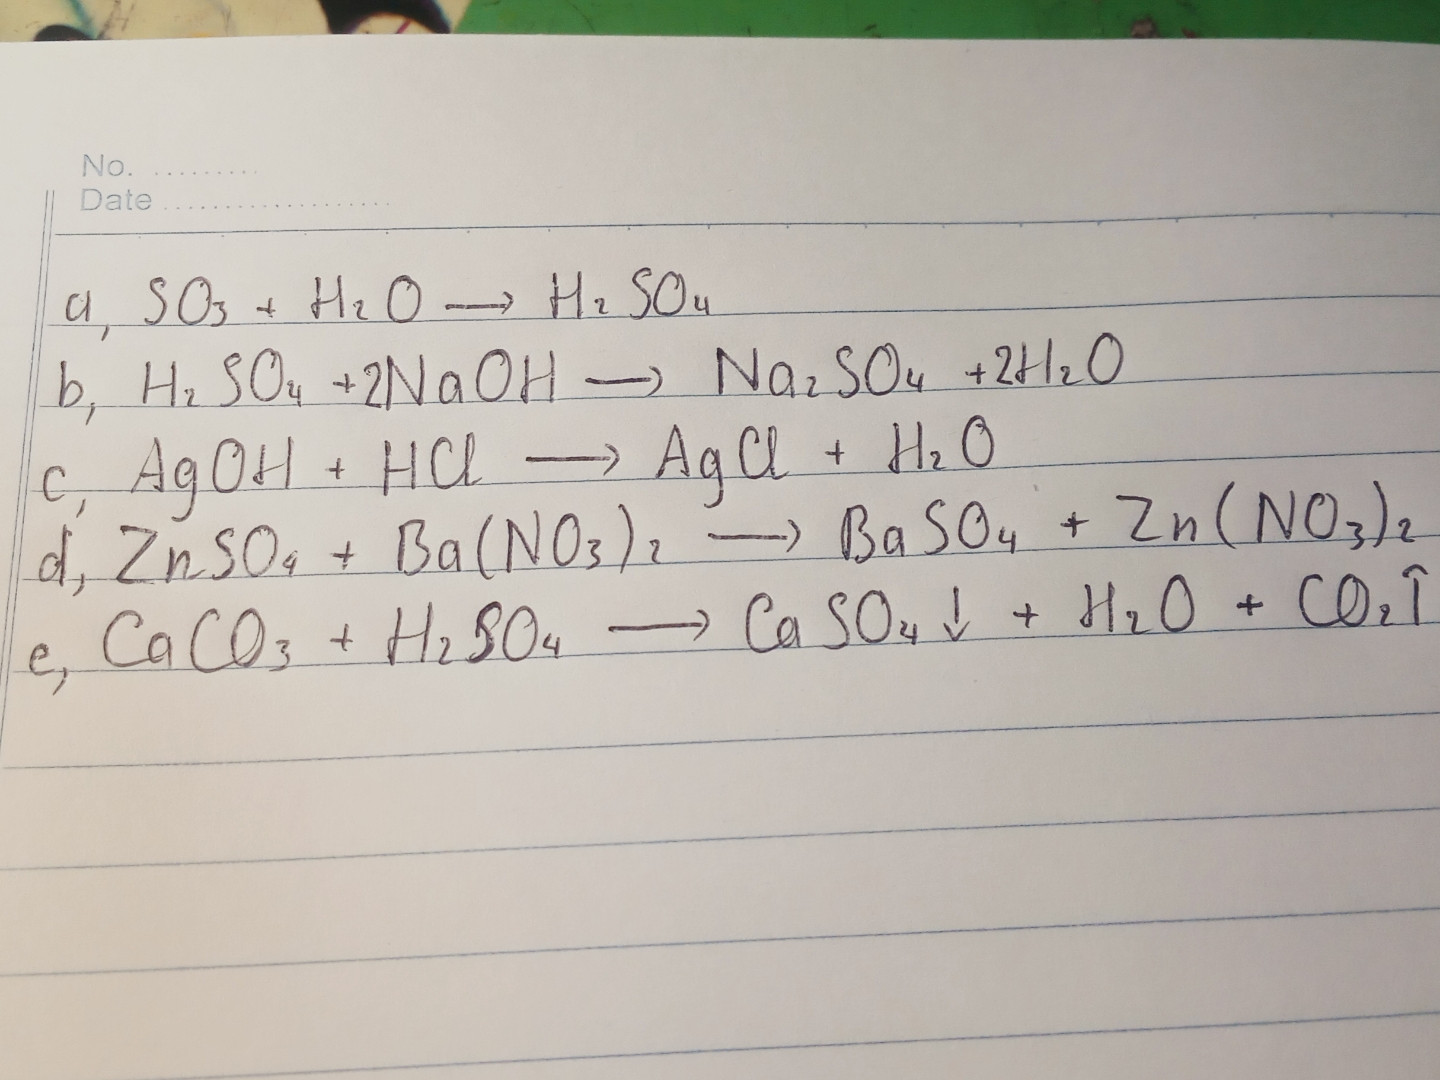 No. .........
Date ...................
a, SO₃ + H₂O ⟶ H₂SO₄
b, H₂SO₄ +2NaOH ⟶ Na₂SO₄ +2H₂O
c, AgOH + HCl ⟶ AgCl + H₂O
d, ZnSO₄ + Ba(NO₃)₂ ⟶ BaSO₄ + Zn(NO₃)₂
e, CaCO₃ + H₂SO₄ ⟶ CaSO₄↓ + H₂O + CO₂↑